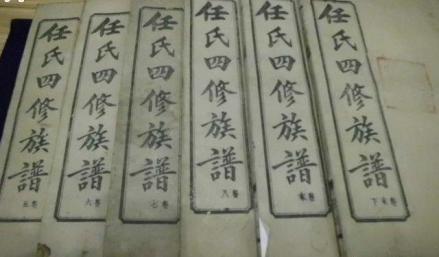 任氏四修族譜 卷五
任氏四修族譜 卷六
任氏四修族譜 卷七
任氏四修族譜 卷八
任氏四修族譜 卷末
任氏四修族譜 卷末下